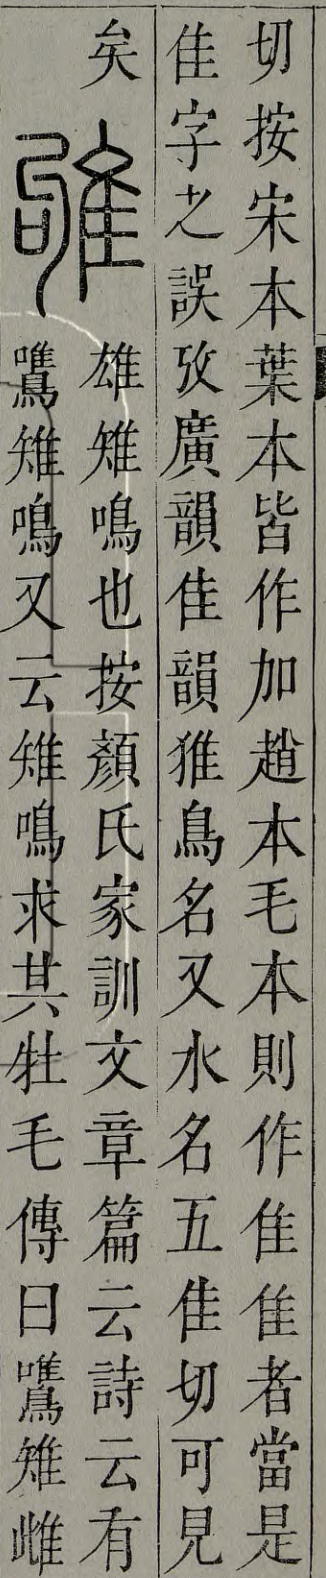 切按宋本葉本皆作加趙本毛本則作隹隹者當是
佳字之誤攷廣韻佳韻猚鳥名又水名五佳切可見
矣
雊
雄雉鳴也按顏氏家訓文章篇云詩云有
鷕雉鳴又云雉鳴求其牡毛傳曰鷕雉雌